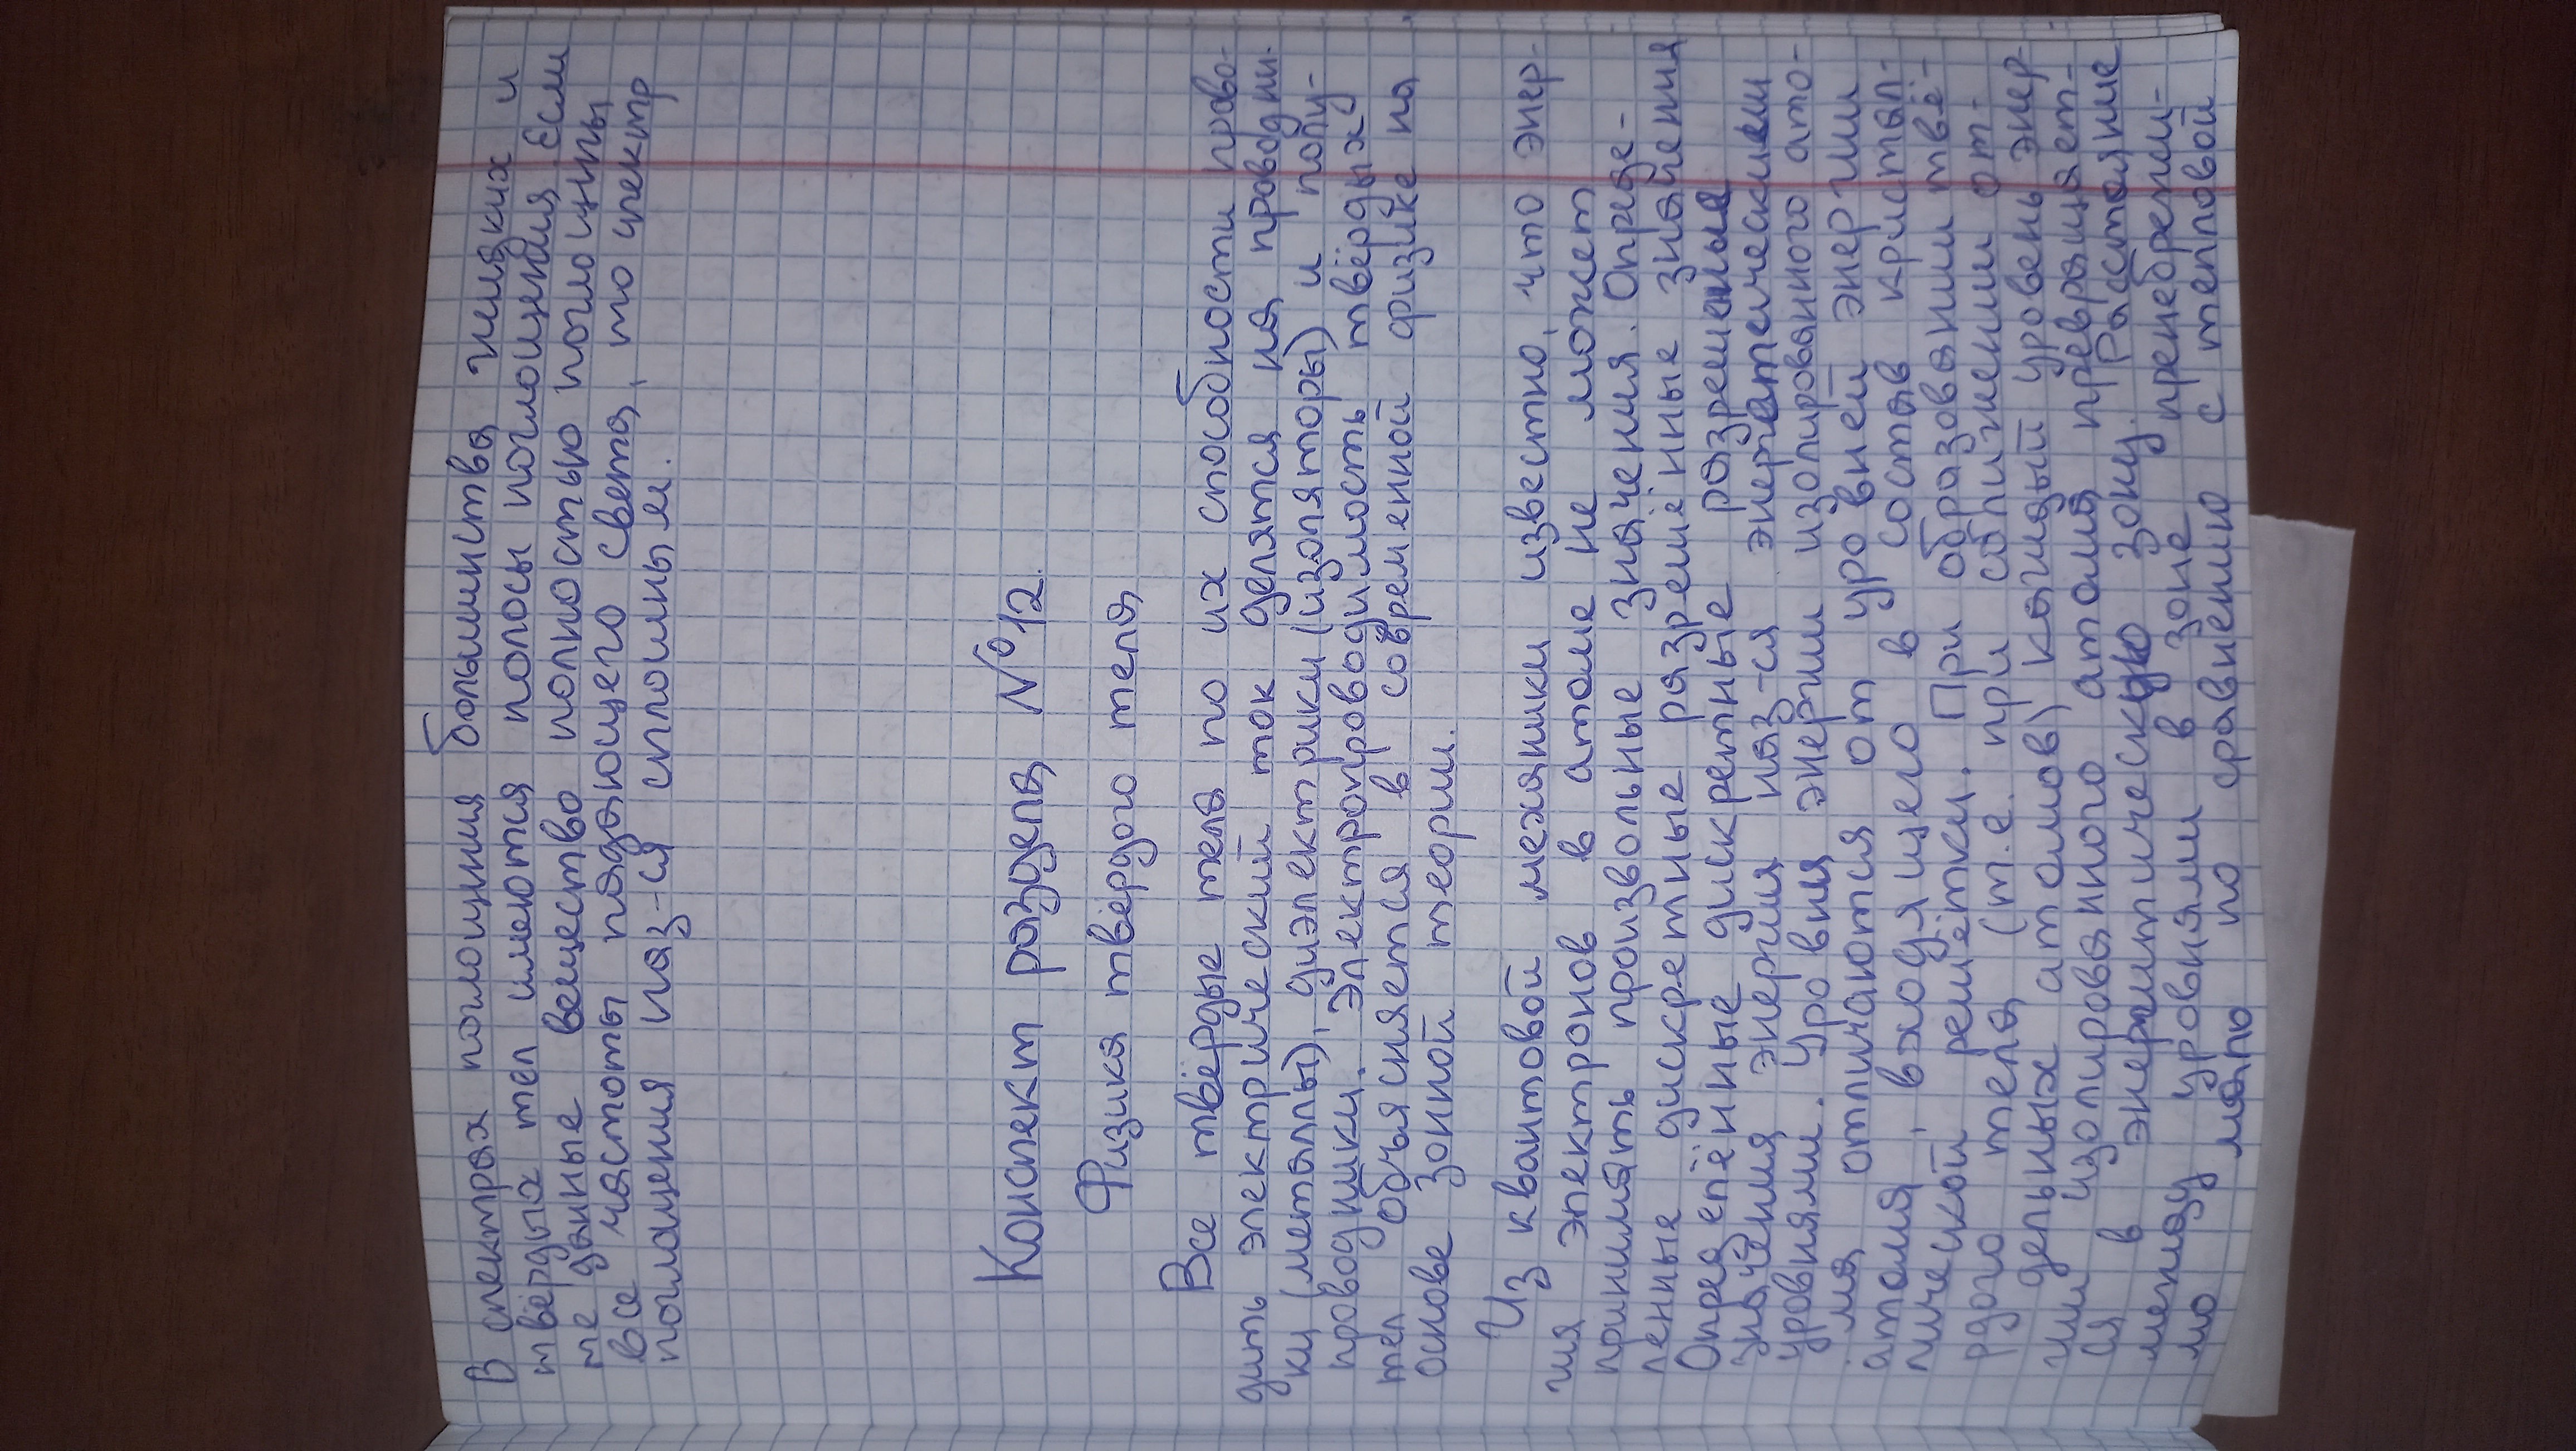 В спектрах поглощения большинства жидких и
твёрдых тел имеются полосы поглощения. Если
те данные вещество полностью поглощены
все частоты падающего света, то спектр
поглощения наз-ся сплошным.
Конспект раздела №12.
Физика твёрдого тела
Все твёрдые тела по их способности прово-
дить электрический ток делятся на проводни-
ки (металлы), диэлектрики (изоляторы) и полу-
проводники. Электропроводимость твёрдых
тел объясняется в современной физике на
основе зонной теории.
Из квантовой механики известно, что энер-
гия электронов в атоме не может
принимать произвольные значения. Опреде-
ленные дискретные разрешённые значения
Определённые дискретные разрешеные
значения энергии наз-ся энергетическими
уровнями. Уровни энергии изолированного ато-
ма отличаются от уровней энергии
атома, входящего в состав кристал-
лической решётки. При образовании твё-
рдого тела (т.е. при сближении от-
дельных атомов) каждый уровень энер-
гии изолированного атома превращает-
ся в энергитическую зону. Расстояние
между уровнями в зоне пренебрежи-
мо мало по сравнению с тепловой